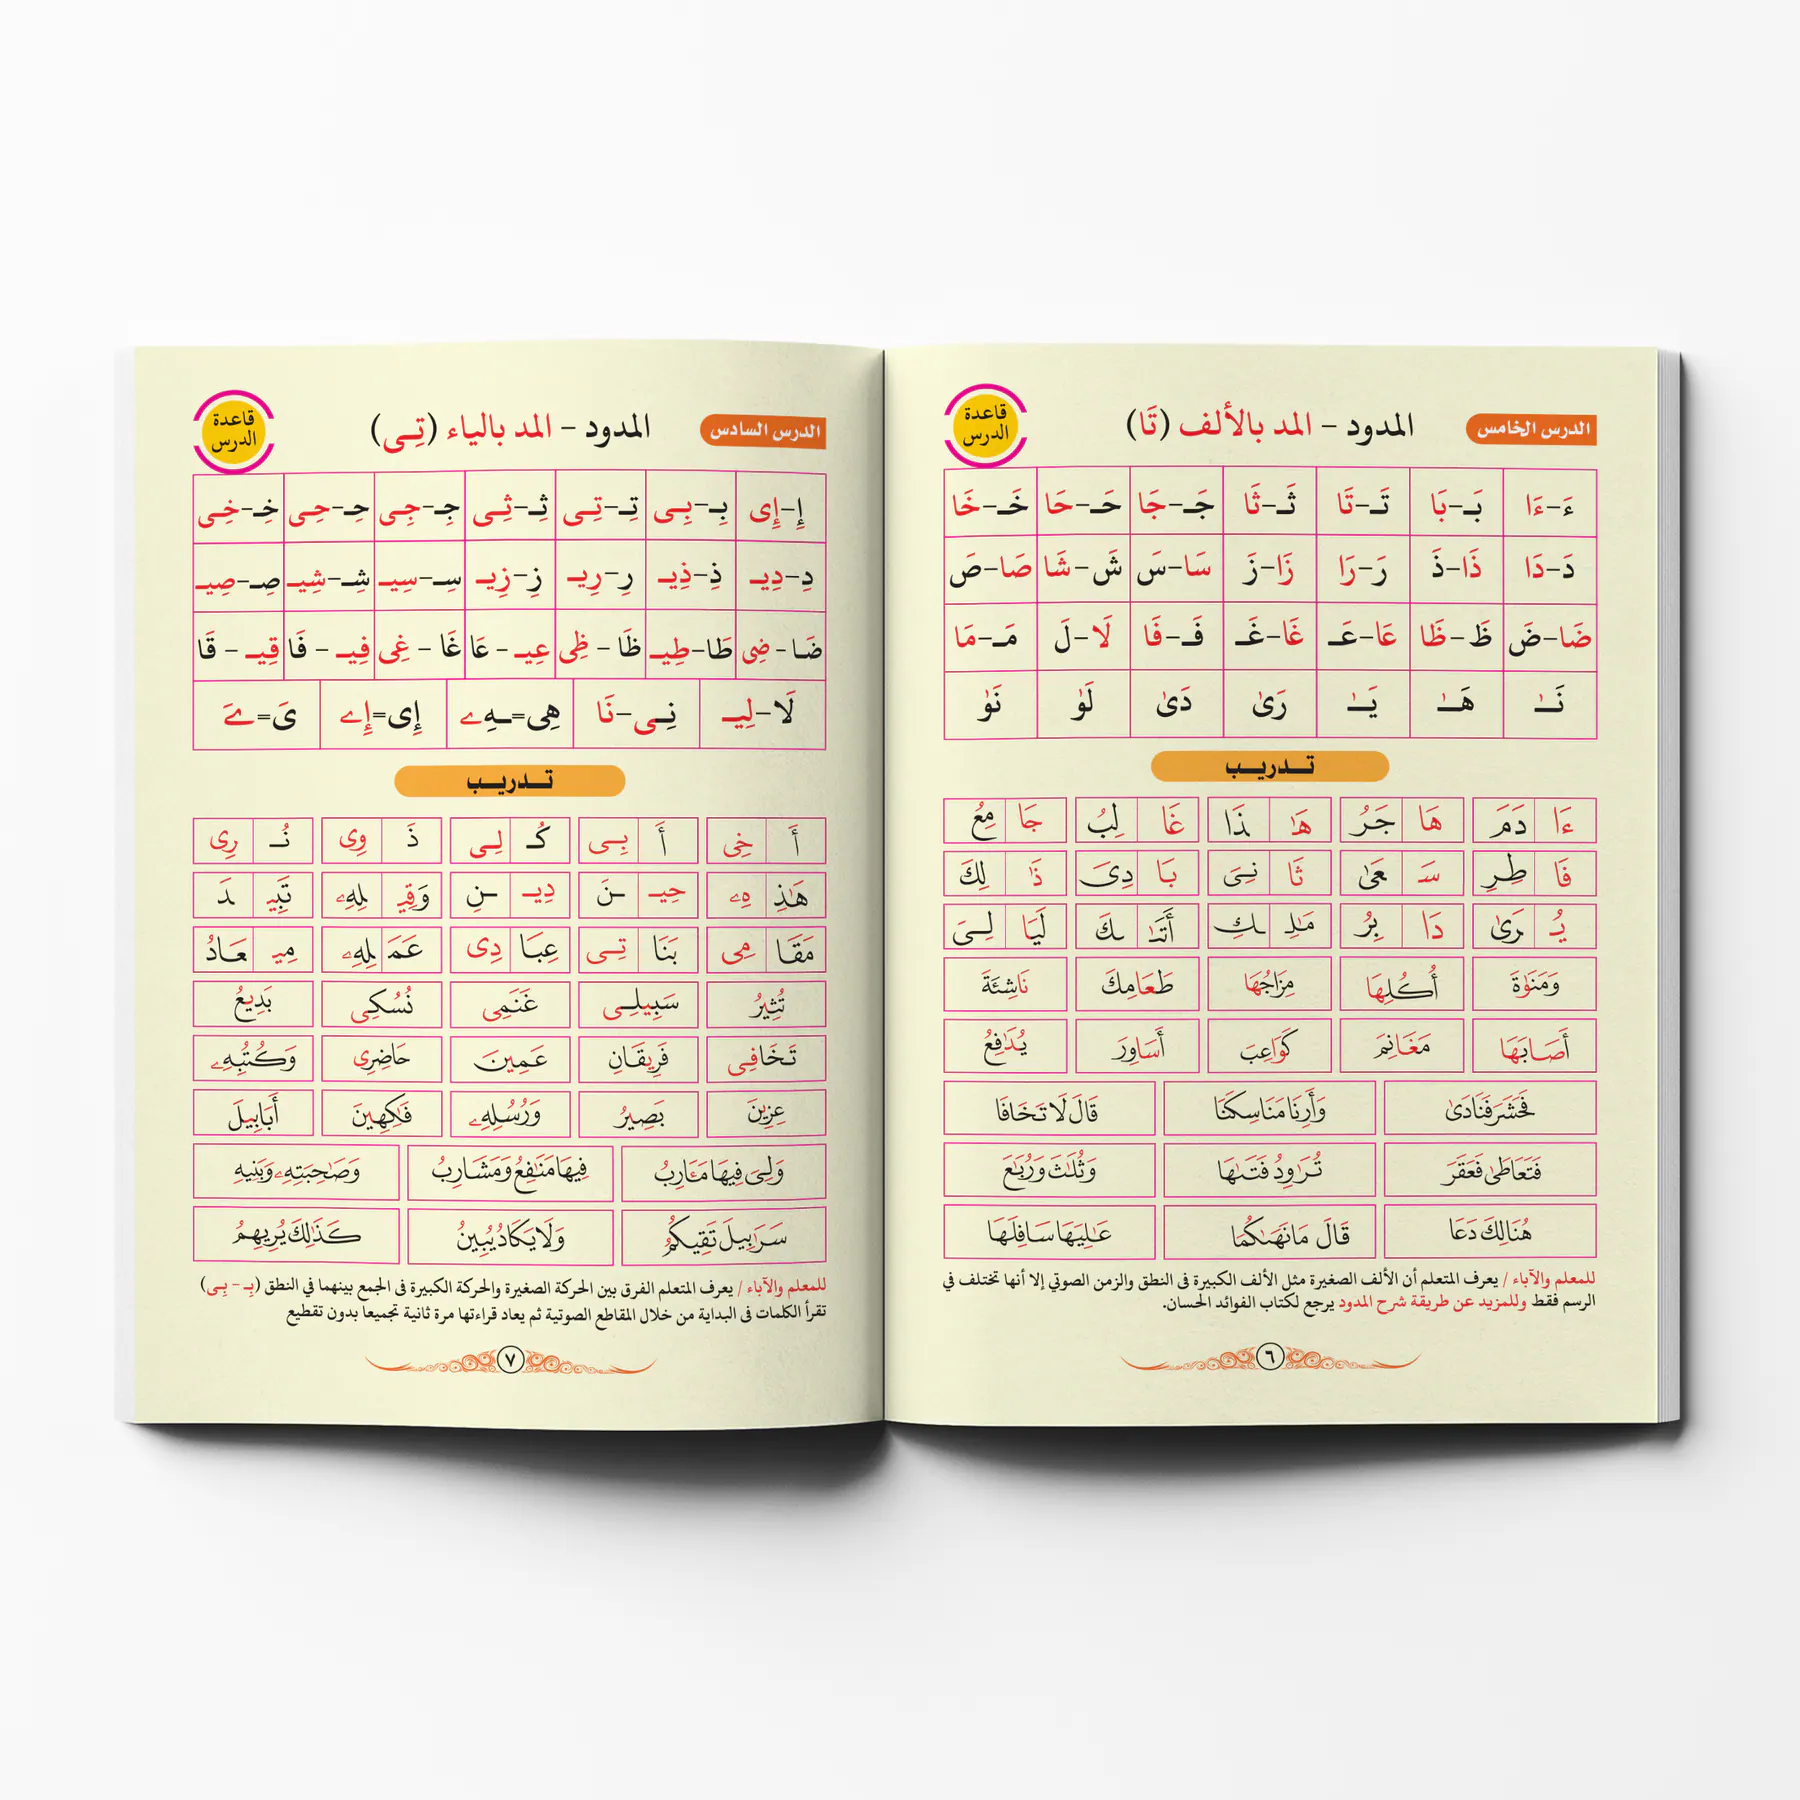 الدرس الخامس المدود - المد بالألف (تَا) قاعدة الدرس
ءَ-ءَا بَـ-بَا تَـ-تَا ثَـ-ثَا جَـ-جَا حَـ-حَا خَـ-خَا
دَ-دَا ذَا-ذَ رَ-رَا زَا-زَ سَا-سَ شَ-شَا صَا-صَ
ضَا-ضَ ظَ-ظَا عَا-عَـ غَا-غَـ فَـ-فَا لَا-لَ مَـ-مَا
نَـٰ هَـٰ يَـٰ رَىٰ دَىٰ لَوٰ نَوٰ
تـدريـب
ءَا دَمَ هَا جَرُ هَٰـ ذَا غَا لِبُ جَا مِعُ
فَا طِرِ سَـ عَىٰ ثَا نِىَ بَا دِىَ ذَا لِكَ
يُـ رَىٰ دَا بِرُ مَٰلِـ ـكِ أَتَىٰـ ـكَ لَيَا لِـىَ
وَمَنَوٰةَ أُكُلِهَا مِزَاجُهَا طَعَامِكَ نَاشِئَةَ
أَصَابَهَا مَغَانِمَ كَوَاعِبَ أَسَاوِرَ يُدَٰفِعُ
فَحَشَرَ فَنَادَىٰ وَأَرِنَا مَنَاسِكَنَا قَالَ لَا تَخَافَا
فَتَعَاطَىٰ فَعَقَرَ تُرَٰوِدُ فَتَىٰهَا وَثُلَٰثَ وَرُبَٰعَ
هُنَالِكَ دَعَا قَالَ مَا نَهَىٰكُمَا عَٰلِيَهَا سَافِلَهَا
للمعلم والآباء / يعرف المتعلم أن الألف الصغيرة مثل الألف الكبيرة فى النطق والزمن الصوتي إلا أنها تختلف في
الرسم فقط وللمزيد عن طريقة شرح المدود يرجع لكتاب الفوائد الحسان.
٦
الدرس السادس المدود - المد بالياء (تِـى) قاعدة الدرس
إِ-إِى بِـ-بِـى تِـ-تِـى ثِـ-ثِـى جِـ-جِـى حِـ-حِـى خِـ-خِـى
دِ-دِيـ ذِ-ذِيـ رِ-رِيـ زِ-زِيـ سِـ-سِيـ شِـ-شِيـ صِـ-صِيـ
ضَا-ضِى طَا-طِيـ ظَا-ظِى عَا-عِيـ غَا-غِى فَا-فِيـ قَا-قِيـ
لَا-لِيـ نَا-نِـى هِى=ـهِۦ إِى=إِۦ ىَ=ۦَ
تـدريـب
أَ خِى أَ بِـى كُـ لِـى ذَ وِى نُـ رِى
هَٰذِ هِۦ حِيـ ـنَ دِيـ ـنِ وَقِيـ لِهِۦ تَبِيـ ـدَ
مَقَا مِى بَنَا تِـى عِبَا دِى عَمَـ لِهِۦ مِيـ عَادُ
تُثِيرُ سَبِيلِـى غَنَمِى نُسُكِى بَدِيعُ
تَخَافِى فَرِيقَانِ عَمِينَ حَاضِرِى وَكُتُبِهِۦ
عِزِينَ بَصِيرُ وَرُسُلِهِۦ فَٰكِهِينَ أَبَابِيلَ
وَلِىَ فِيهَا مَـَٔارِبُ فِيهَا مَنَٰفِعُ وَمَشَارِبُ وَصَٰحِبَتِهِۦ وَبَنِيهِ
سَرَٰبِيلَ تَقِيكُمُ وَلَا يَكَادُ يُبِينُ كَذَٰلِكَ يُرِيهِمُ
للمعلم والآباء / يعرف المتعلم الفرق بين الحركة الصغيرة والحركة الكبيرة فى الجمع بينهما في النطق (بِـ - بِـى)
تقرأ الكلمات فى البداية من خلال المقاطع الصوتية ثم يعاد قراءتها مرة ثانية تجميعا بدون تقطيع
٧